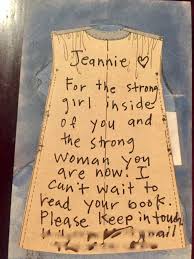 Jeannie ♡
For the strong
girl inside
of you and
the strong
woman you
are now! I
can't wait to
read your book.
Please keep in touch